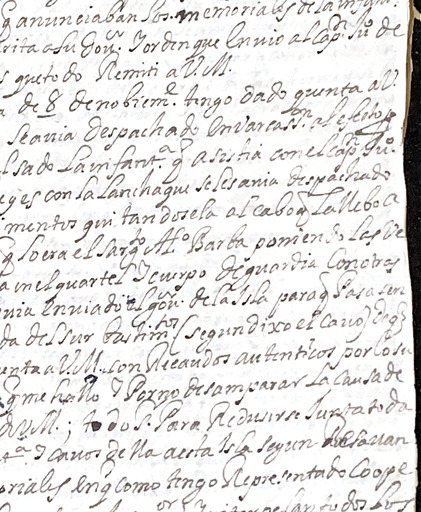 q anunciaban los memoriales de la infant.
rita a su Gov.r Y orden que envio al Cap.n Ju.o de
s que todo Remiti a V.M.
a de 8 de nobiem.e tengo dado quenta a V.
se avia Despachado embarcass.on al efecto
lsado La infant.a q asistia con el cap.n Ju.o
eges con la lancha que se les avia despachado
mentos quitandosela al cabo q La llebo a
q lo era el sarg.to Al.o Barba poniendo las de
a en el quartel Y cuerpo de guardia con otras
avia enviado el gov.r de la Isla para q Pasasen
da del sur bastim.tos (segun dixo el cavo) de q
uenta a V.M. con Recaudos autenticos por lo su
q me hallo Y Por no desamparar La Causa de
V.M.; todo S. Para Redusirse Junta toda
t.a Y cavos della a esta Isla segun
oriales en q como tengo Representado Coope